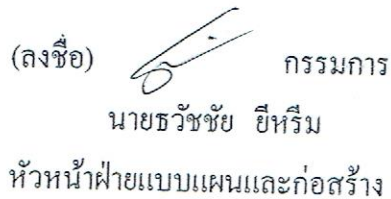 (ลงชื่อ) กรรมการ
นายธวัชชัย ยีหรีม
หัวหน้าฝ่ายแบบแผนและก่อสร้าง